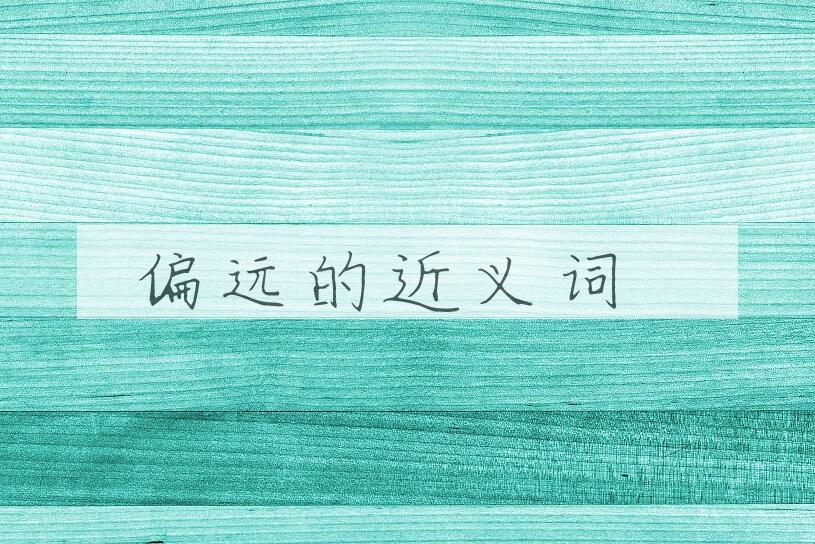 偏远的近义词